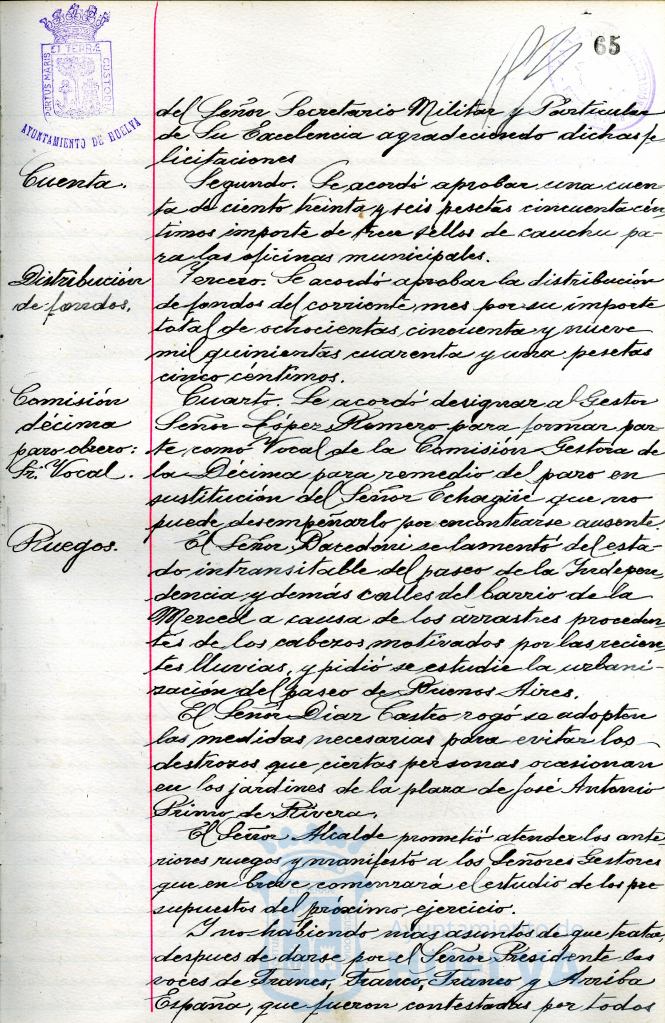 65
PORTUS MARIS ET TERRÆ CUSTODIA
AYUNTAMIENTO DE HUELVA
del Señor Secretario Militar y Particular
de Su Excelencia agradeciendo dichas fe
licitaciones
Cuenta.
Segundo. Se acordó aprobar una cuen
ta de ciento treinta y seis pesetas cincuenta cén
timos importe de trece sellos de cauchu pa
ra las oficinas municipales.
Distribución
de fondos.
Tercero. Se acordó aprobar la distribución
de fondos del corriente mes por su importe
total de ochocientas cincuenta y nueve
mil quinientas cuarenta y una pesetas
cinco céntimos.
Comisión
décima
paro obrero:
Sr. Vocal.
Cuarto. Se acordó designar al Gestor
Señor López Romero para formar par
te como Vocal de la Comisión Gestora de
la Décima para remedio del paro en
sustitución del Señor Echagüe que no
puede desempeñarlo por encontrarse ausente
Ruegos.
El Señor se lamentó del esta
do intransitable del paseo de la Indepen
dencia y demás calles del barrio de la
Merced a causa de los arrastres proceden
tes de los cabezos motivados por las recien
tes lluvias, y pidió se estudie la urbani
zación del paseo de Buenos Aires.
El Señor Díaz Castro rogó se adopten
las medidas necesarias para evitar los
destrozos que ciertas personas ocasionan
en los jardines de la plaza de José Antonio
Primo de Rivera.
El Señor Alcalde prometió atender los ante
riores ruegos y manifestó a los Señores Gestores
que en breve comenzará el estudio de los pre
supuestos del próximo ejercicio.
Y no habiendo mas asuntos de que tratar,
despues de darse por el Señor Presidente las
voces de Franco, Franco, Franco y Arriba
España, que fueron contestadas por todos
Ayuntamiento de
HUELVA